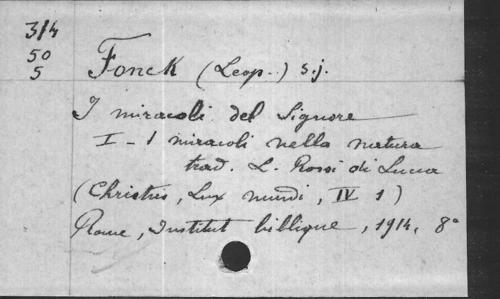 314
50
5
Fonck (Leop.) s.j.
I miracoli del Signore
I - I miracoli nella natura
trad. L. Rossi di Lucca
(Christus, Lux mundi, IV 1)
Rome, Institut biblique, 1914, 8°